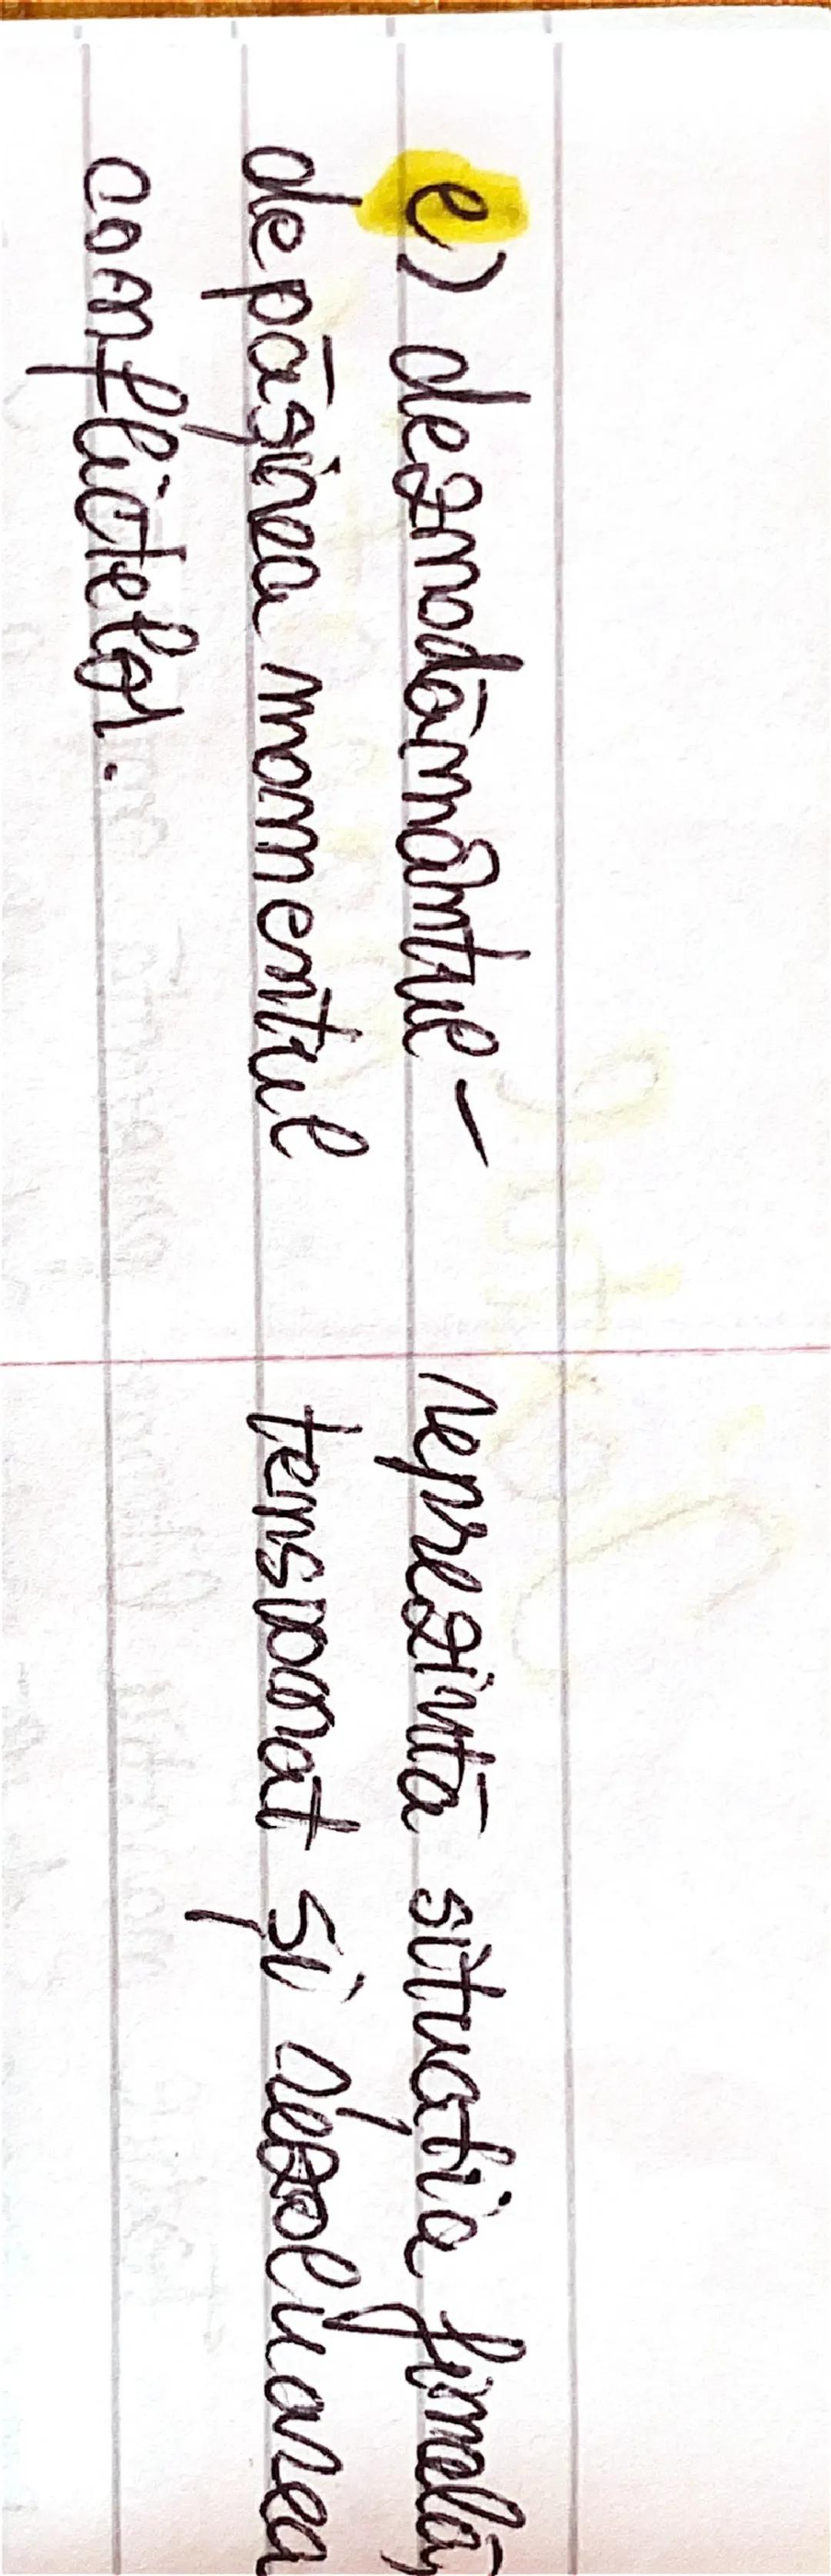 e) deznodământul - reprezintă situația finală,
depășirea momentul tensionat și rezolvarea
conflictelor.